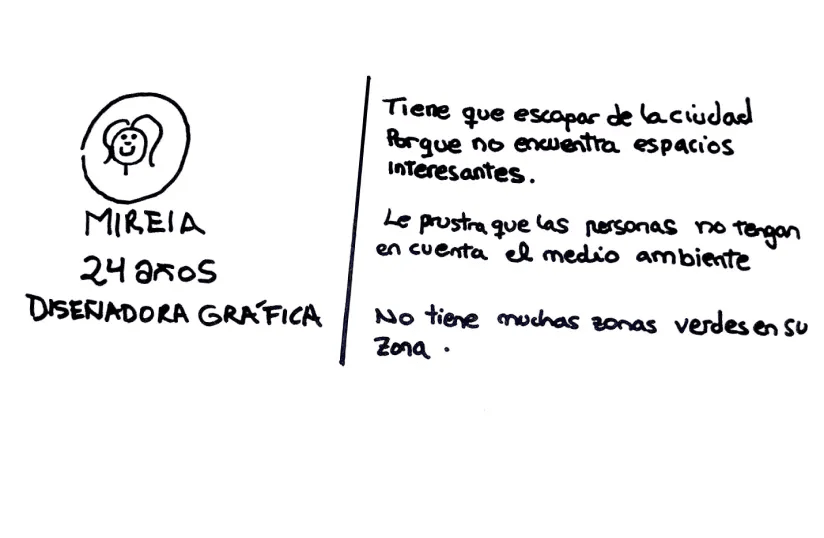 MIREIA
24 años
DISEÑADORA GRÁFICA
Tiene que escapar de la ciudad
Porque no encuentra espacios
interesantes.
Le prustra que las personas no tengan
en cuenta el medio ambiente
No tiene muchas zonas verdes en su
zona.